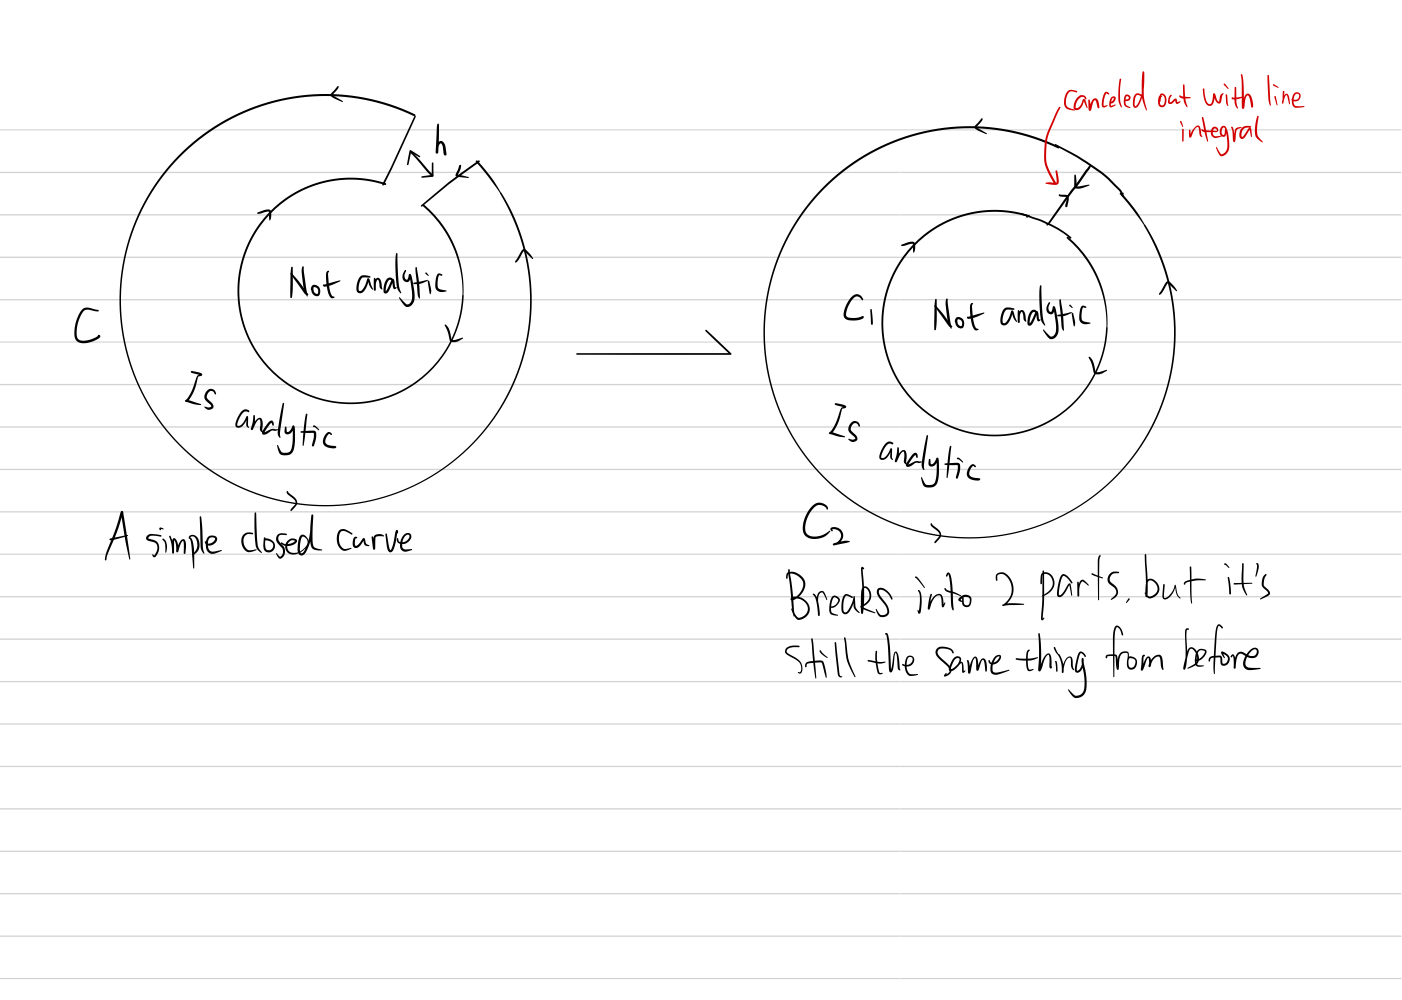 h
Not analytic
C
Is analytic
A simple closed curve
canceled out with line
integral
C₁
Not analytic
Is analytic
C₂
Breaks into 2 parts, but it's
still the same thing from before